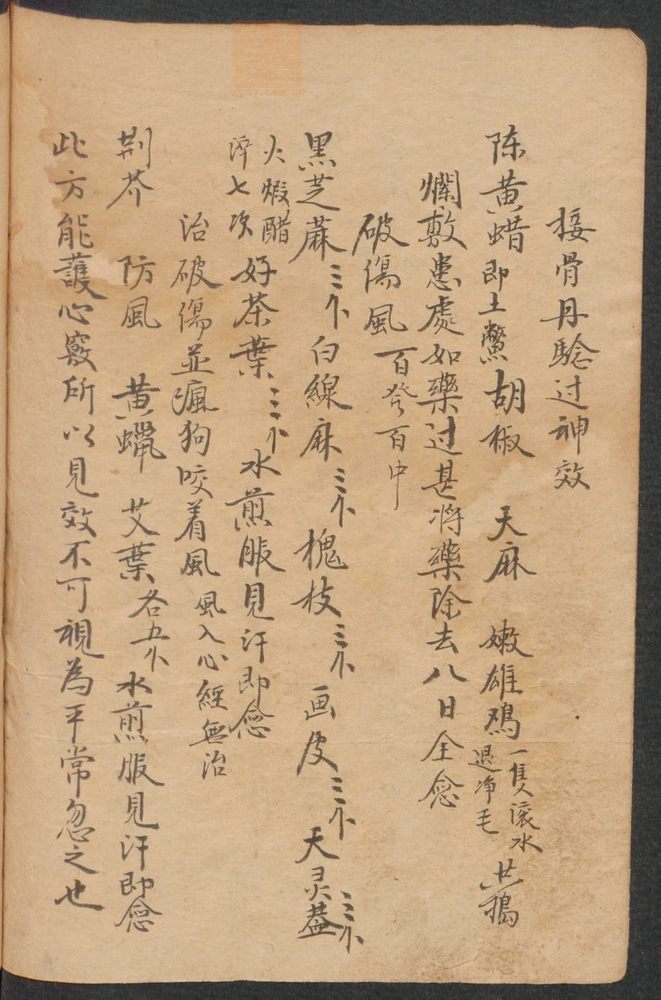 接骨丹騐过神效
陈黄蜡即土鱉 胡椒 天麻 嫩雄鸡一隻滚水退净毛 共搗
爛敷患處如藥过甚将藥除去八日全愈
破傷風百發百中
黑芝蔴三个白線麻三个槐枝三个画皮三个天灵蓋三个
火煅醋淬七次好茶葉三个水煎服見汗即愈
治破傷並瘋狗咬着風 風入心經無治
荆芥 防風 黄蠟 艾葉各五个水煎服見汗即愈
此方能護心竅所以見效不可視為平常忽之也